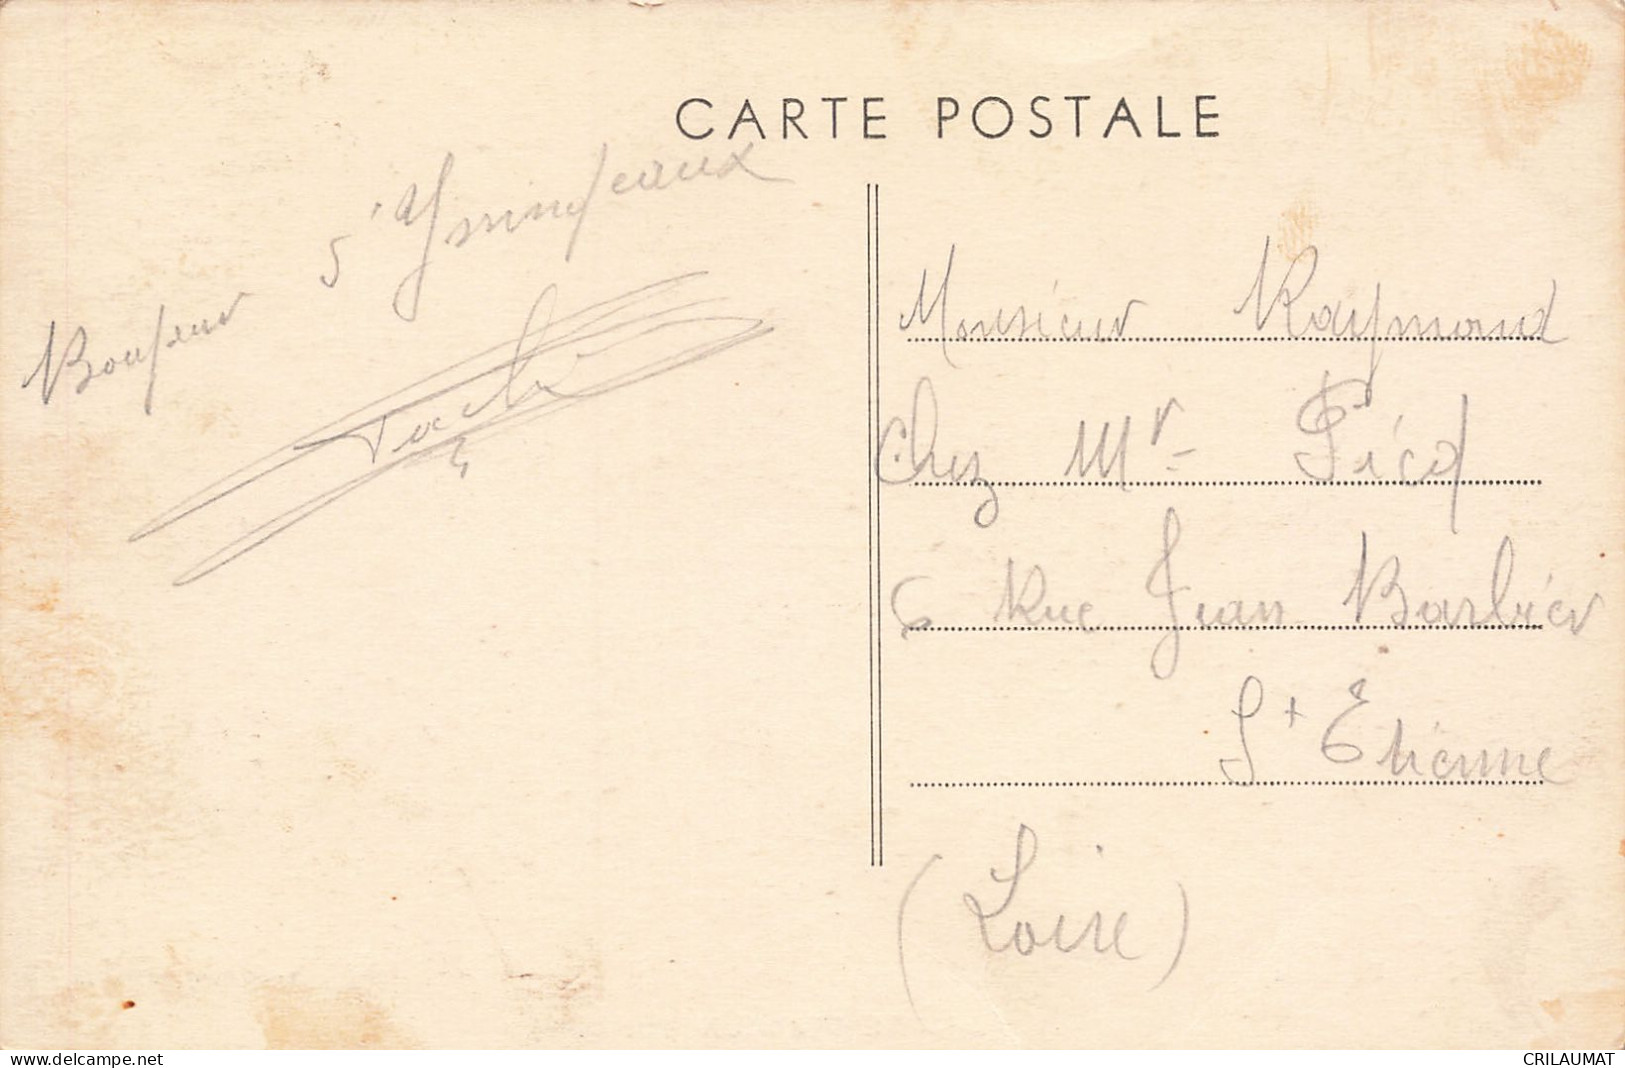 CARTE POSTALE
Boujour d'Yssingeaux
Monsieur Raymond
Chez Mr Picq
6 Rue Jean Barbier
St Etienne
(Loire)
www.delcampe.net
CRILAUMAT